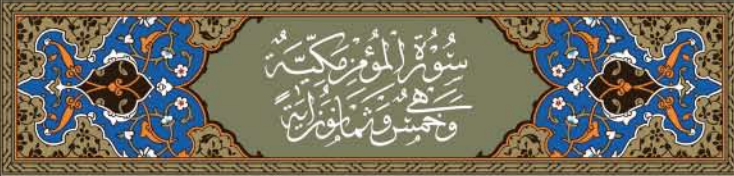 سُوْرَةُ الْمُؤْمِنِ مَكِّيَّةٌ
وَهِيَ خَمْسٌ وَّثَمَانُوْنَ اٰيَةً